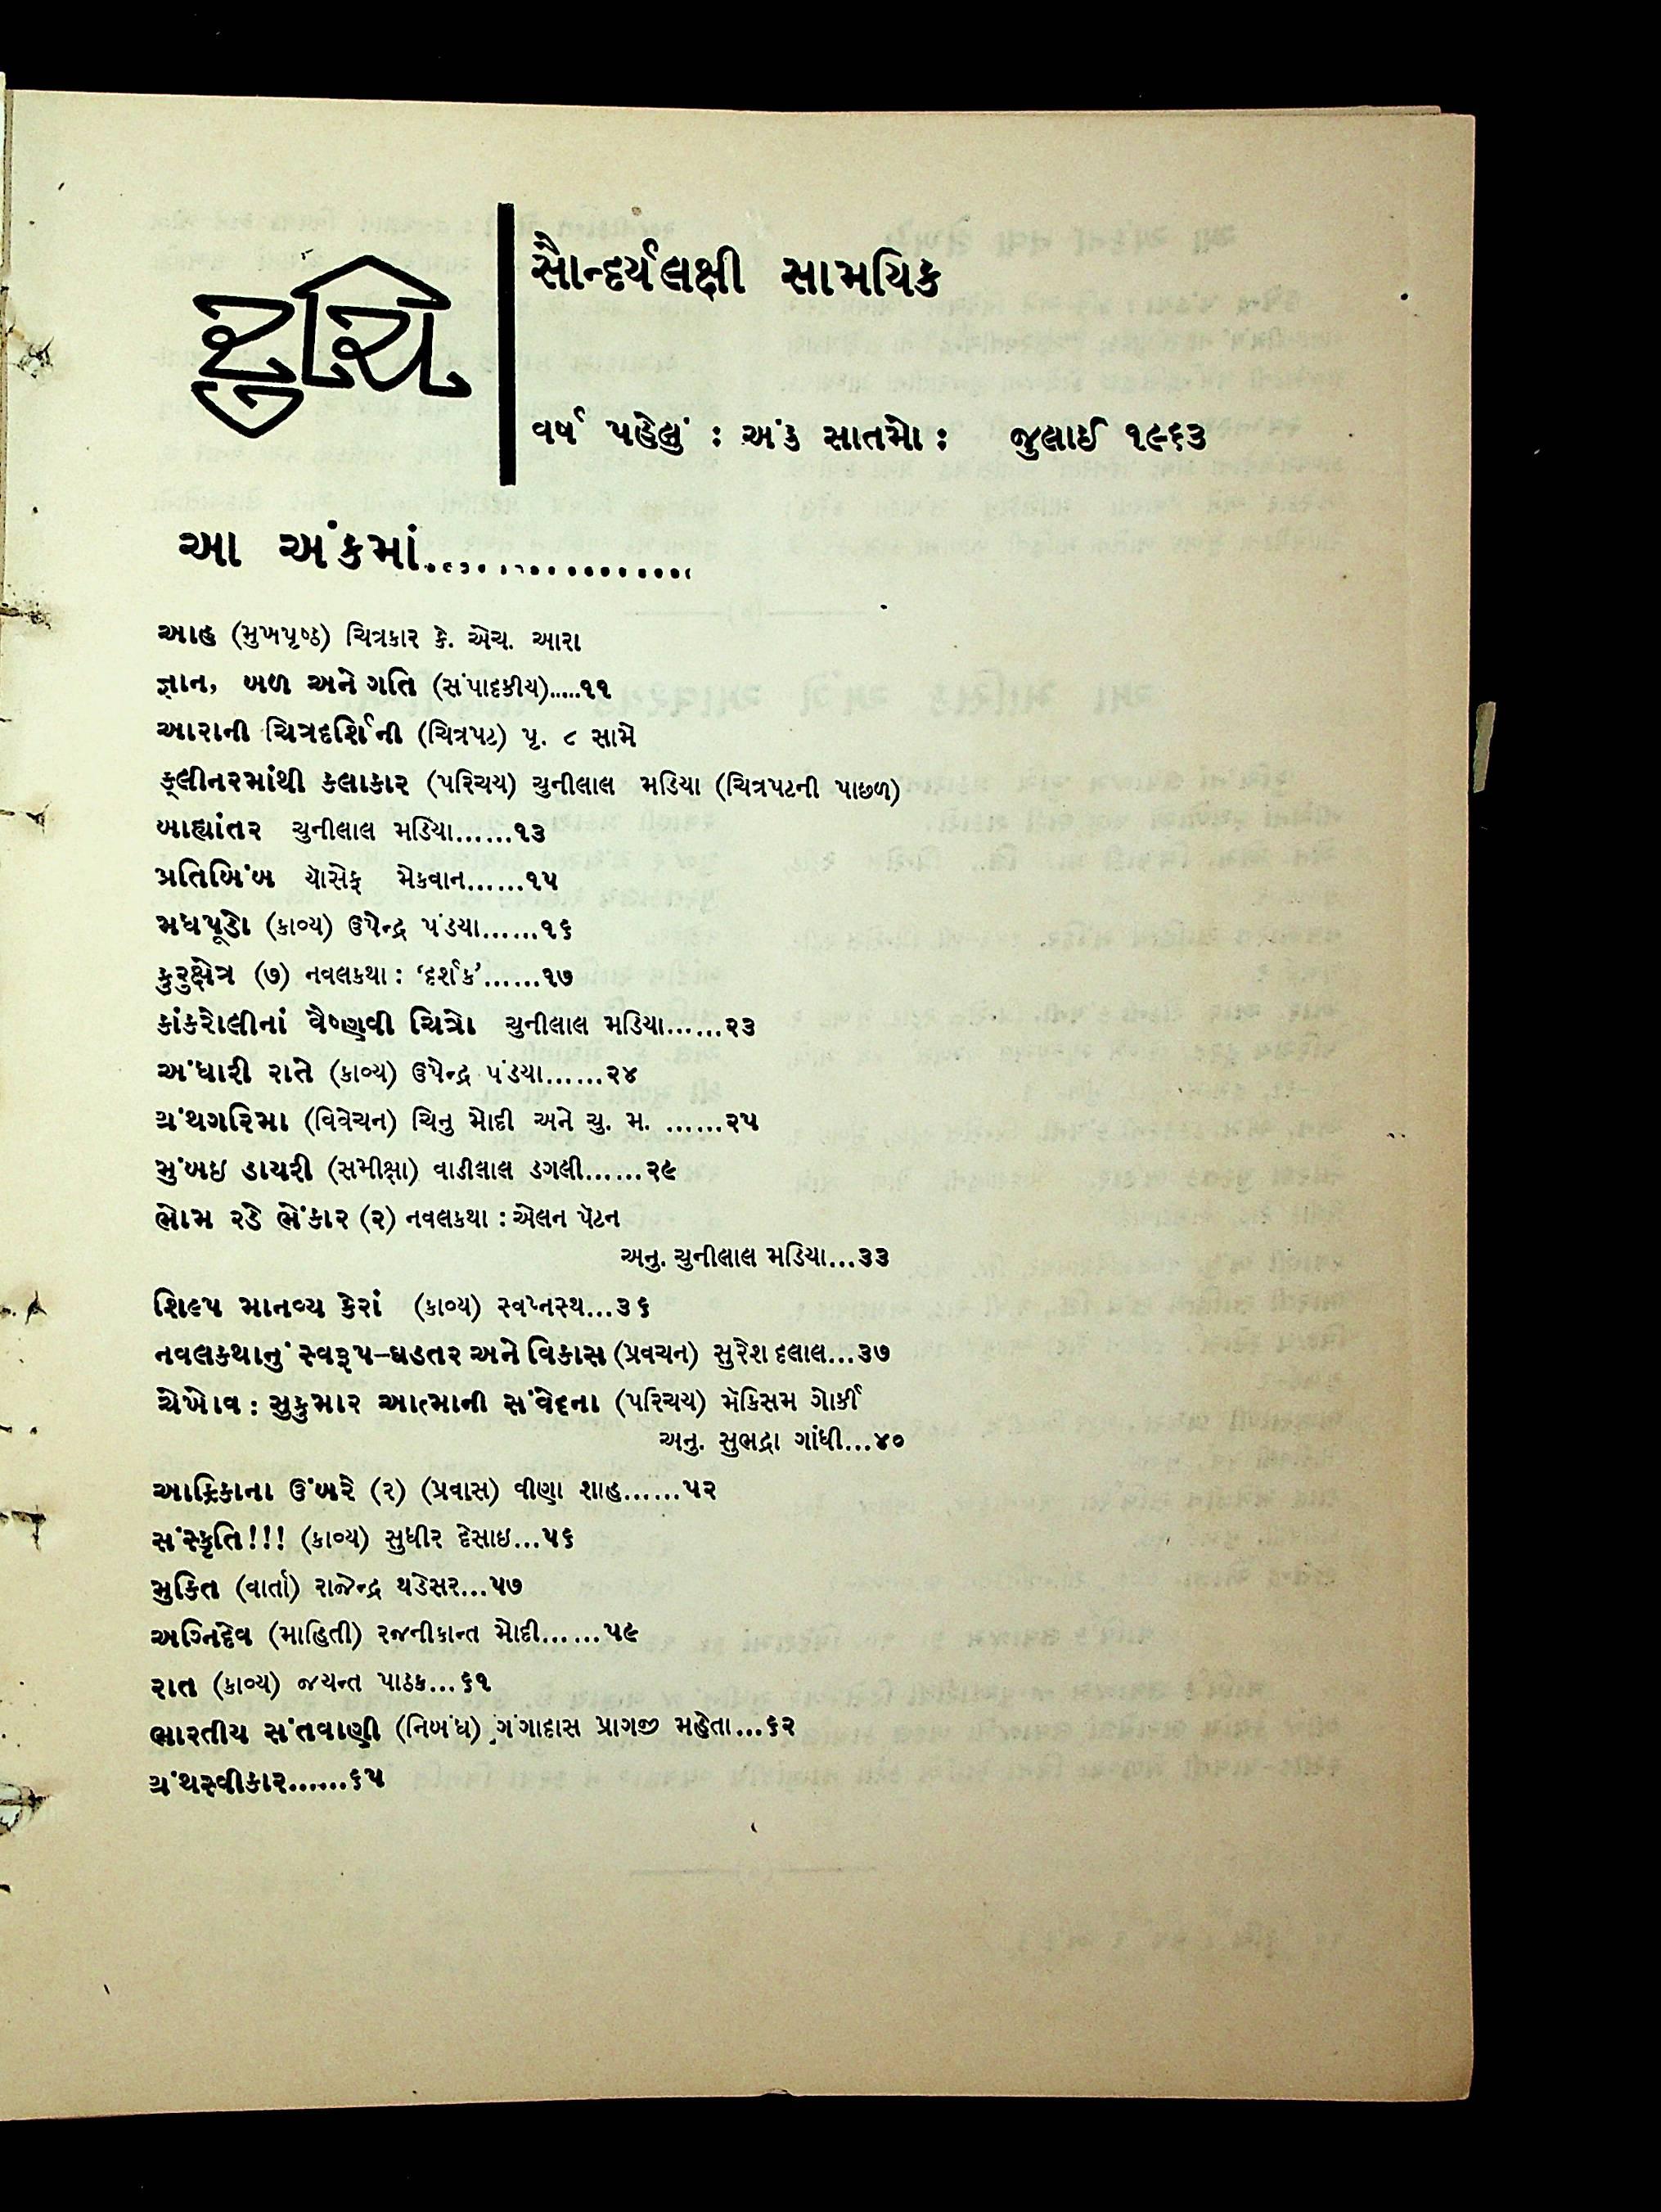 રુચિ
સૌન્દર્યલક્ષી સામયિક
વર્ષ પહેલું : અંક સાતમો : જુલાઈ ૧૯૬૩
આ અંકમાં..................
આહ (મુખપૃષ્ઠ) ચિત્રકાર કે. એચ. આરા
જ્ઞાન, બળ અને ગતિ (સંપાદકીય).....૧૧
આરાની ચિત્રદર્શિની (ચિત્રપટ) પૃ. ૮ સામે
ક્લીનરમાંથી કલાકાર (પરિચય) ચુનીલાલ મડિયા (ચિત્રપટની પાછળ)
બાહ્યાંતર ચુનીલાલ મડિયા......૧૩
પ્રતિબિંબ યૉસેફ મેકવાન......૧૫
મધપૂડો (કાવ્ય) ઉપેન્દ્ર પંડયા......૧૬
કુરુક્ષેત્ર (૭) નવલકથા : ‘દર્શક’......૧૭
કાંકરોલીનાં વૈષ્ણવી ચિત્રો ચુનીલાલ મડિયા......૨૩
અંધારી રાતે (કાવ્ય) ઉપેન્દ્ર પંડયા......૨૪
ગ્રંથગરિમા (વિવેચન) ચિનુ મોદી અને ચુ. મ. ......૨૫
મુંબઇ ડાયરી (સમીક્ષા) વાડીલાલ ડગલી......૨૯
ભોમ રડે ભેંકાર (૨) નવલકથા : એલન પૅટન
અનુ. ચુનીલાલ મડિયા...૩૩
શિલ્પ માનવ્ય કેરાં (કાવ્ય) સ્વપ્નસ્થ...૩૬
નવલકથાનું સ્વરૂપ–ઘડતર અને વિકાસ (પ્રવચન) સુરેશ દલાલ...૩૭
ચેખોવ : સુકુમાર આત્માની સંવેદના (પરિચય) મૅકિસમ ગોર્કી
અનુ. સુભદ્રા ગાંધી...૪૦
આફ્રિકાના ઉંબરે (૨) (પ્રવાસ) વીણા શાહ......૫૨
સંસ્કૃતિ!!! (કાવ્ય) સુધીર દેસાઇ...૫૬
મુકિત (વાર્તા) રાજેન્દ્ર થડેસર...૫૭
અગ્નિદેવ (માહિતી) રજનીકાન્ત મોદી......૫૯
રાત (કાવ્ય) જયન્ત પાઠક...૬૧
ભારતીય સંતવાણી (નિબંધ) ગંગાદાસ પ્રાગજી મહેતા...૬૨
ગ્રંથસ્વીકાર......૬૫